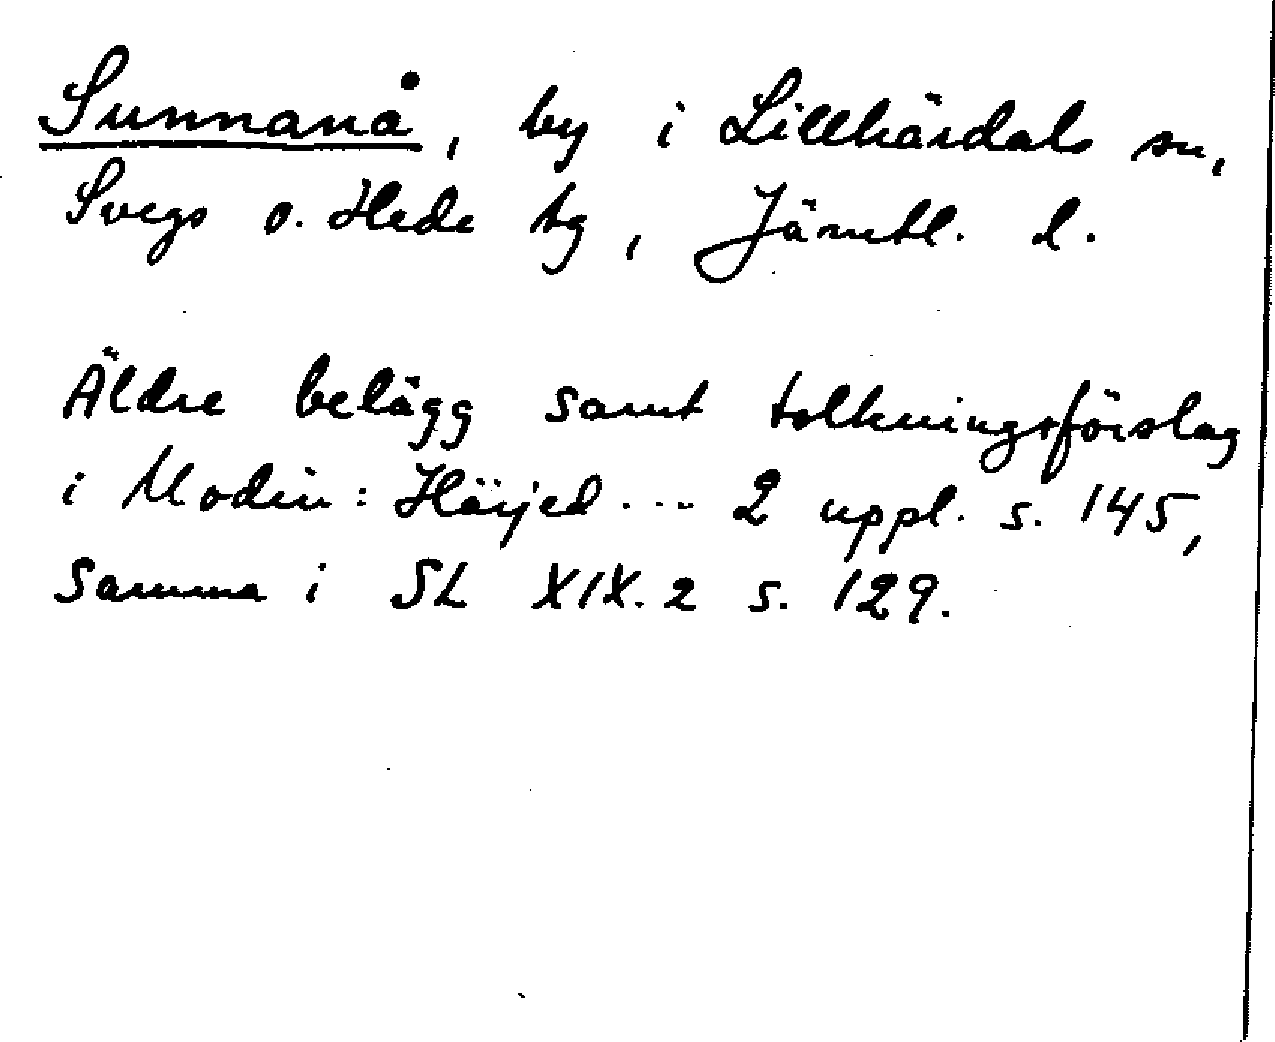 Sunnanå, by i Lillhärdals sn,
Svegs o. Hede tg, Jämtl. l.
Äldre belägg samt tolkningsförslag
i Modin: Härjed... 2 uppl. s. 145,
Samma i SL XIX.2 s. 129.